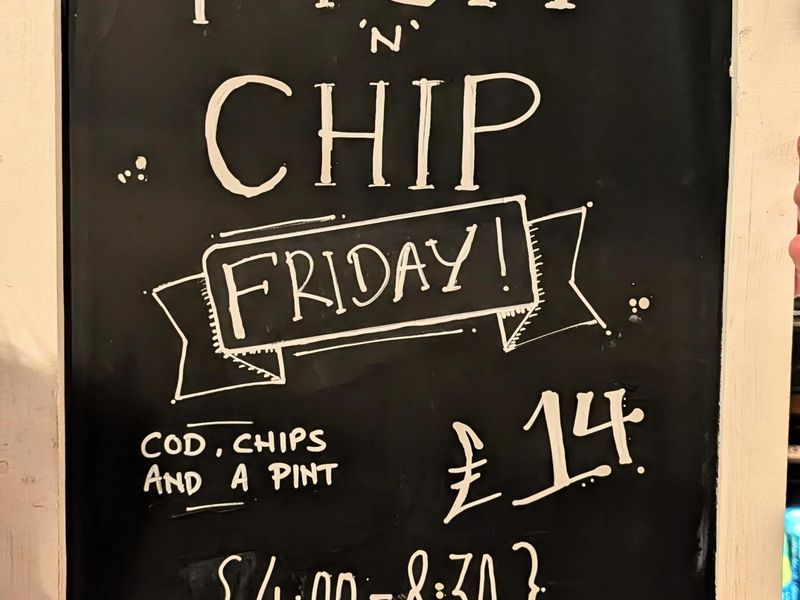 'N'
CHIP
FRIDAY!
COD, CHIPS
AND A PINT
£14
{4:00-8:30}